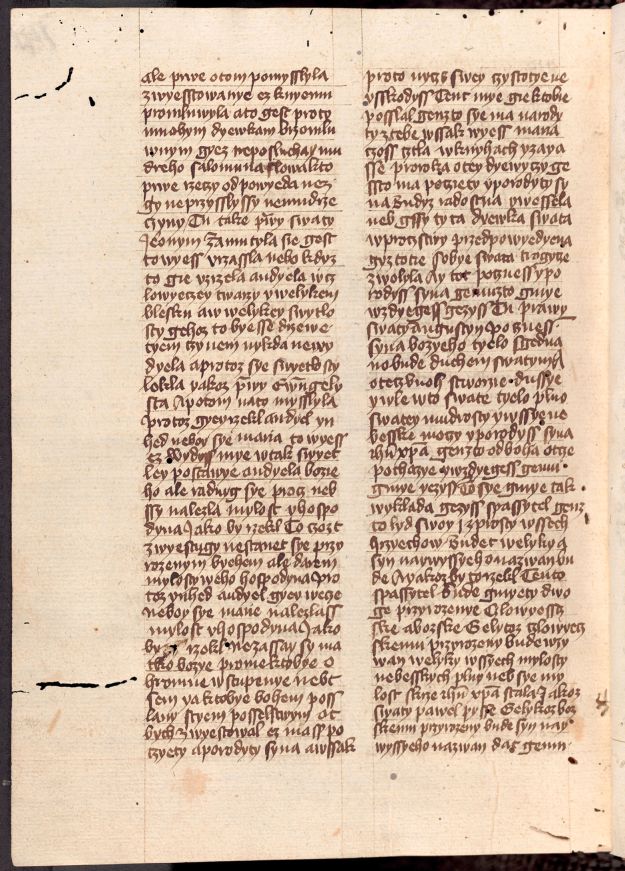 ale prwe otom pomysslyla
zwyestowanye ez knyemu
promluwyla ato gest proty
mnohym dyewkam bizomlu
wnym gyez neposluchay mu
dreho salomuna
prwe rzeczy odpowyeda nez
gy neprzyslyssy nemudrze
czyny Tu take prwy swaty
Jeonym Zamutyla sie gest
towyess vzassla nebo kdyz
to gie vzizela andyela wcz
lowyeczey twarzy ywelykem
blesku aw welykey swytlo
sty gehoz to byesse drzewe
tyem czynem nykda newy
dyela aprotoz sye swyetlosty
lekla yakoz prwy Ewangely
sta Apotom nato mysslyla
protoz gyey rzekl andyel yn
hed neboy sye maria to wyess
ez wydyss mye wtak swyet
ley postawye andyela bozie
ho ale raduyg sye proz neb
ssy nalezla mylost vhospo
dyna Jako by rzekl To czozt
zwyestugy nestanet sye przy
rozenym byehem ale darem
mylostyweho hospodyna pro
toz ynhed andyel gyey wece
neboy sye maria nalezlass
mylost vhospodyna Jako
by rzekl nezassay sy ma
tko bozye promektobye o
hromne wstupenye nebt
sem ya ktobye bohem poss
lany styem posselstwym at
bych zwyestowal ez mass po
czyety aporodyty syna awssak
proto nyczs swey czystotye ne
vsskodyss Tent mye gie ktobie
posslal genzto sye ma narody
ty ztebe wssak wyess maria
czoss cztla wknyhach yzaya
sse proroka otey dyewyczy ge
ssto ma pocziety yporodyty sy
na Budyz radostna ywessela
neb gssy ty ta dyewka swata
wproczstwy przedpowyedyena
gyz totie sobye swata trogyce
zwolyla Ay tot poczness ypo
rodyss syna gemuzto gmye
wzdyegess gezyss Tu prawy
swaty augustyn pocness
syna bozyeho tyelo stebe
no bude duchem swatym A
otecz buoh stworzie dussye
ywle wto swate tyelo plno
swatey mudrosty ywssye ne
besske mogy yporodyss syna
ihu xpa genzto odboha otcze
pochazye ywzdyegess gemu
gmye yezyss To sye gmye tak
wyklada gezyss spassytel genz
to lyd swoy zprosty wssech
hrzyechow Budet welyky A
syn naywyssyeho nazwan bu
de A yakoz by to rzekl Tento
spassytel bude gmyety dwo
ge przyrozenye Czlowyess
ske abozske Gelykoz czlowycz
skemu przyrozeny bude wzy
wan welyky wssyech mylosty
nebesskych plny neb sye my
lost skrze ihu xpa stala Jakoz
swaty pawel pysse Gelykoz boz
skemu przyrozeny bude syn nay
wyssyeho nazwan das gemu